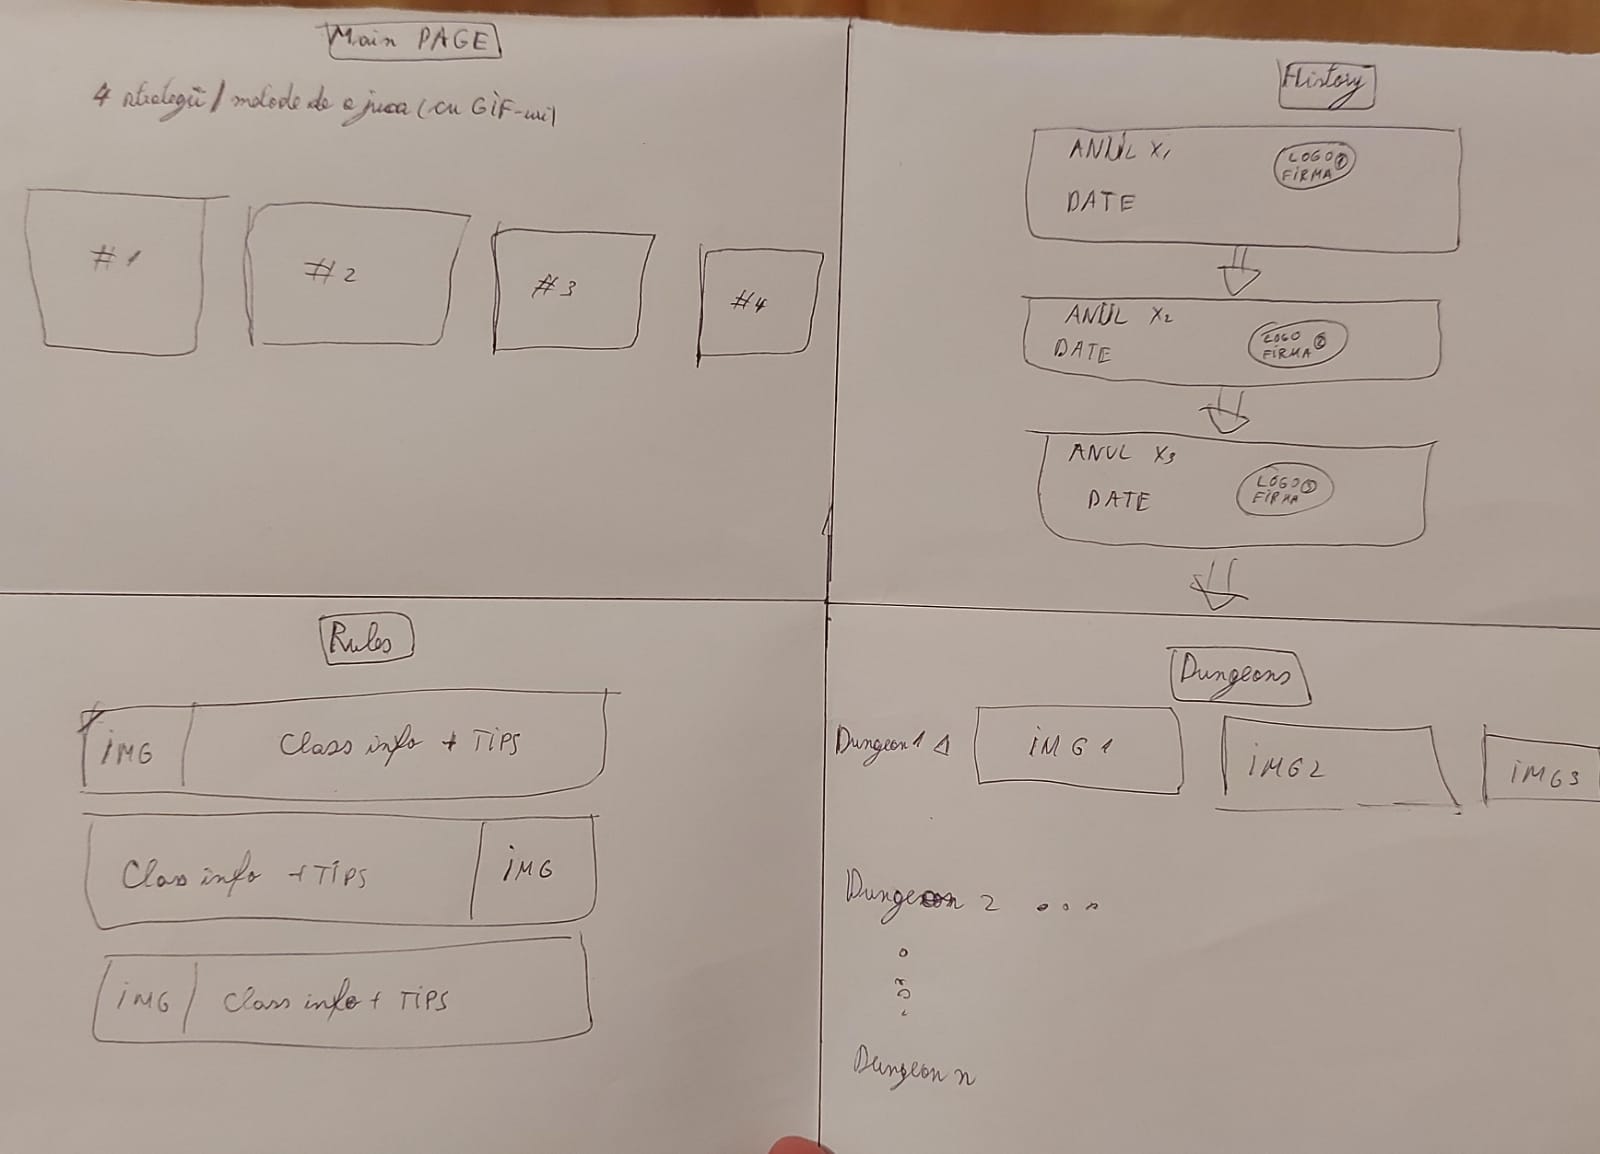 Main PAGE
4 strategii / metode de a juca (cu GIF-uri)
#1
#2
#3
#4
History
ANUL X1
LOGO 1
FIRMA
DATE
ANUL X2
LOGO
FIRMA 2
DATE
ANUL X3
LOGO 3
FIRMA
DATE
Rules
IMG
Class info + TIPS
Class info + TIPS
IMG
IMG
Class info + TIPS
Dungeons
Dungeon 1
IMG 1
IMG 2
IMG 3
Dungeon 2 ...
Dungeon n